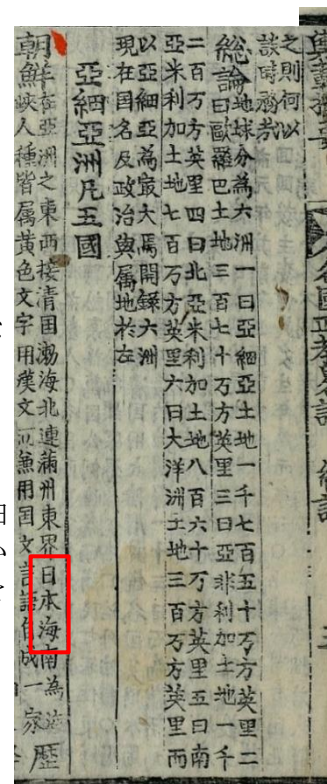 之則何以
談時務
總論地球分為六洲一曰亞細亞土地一千七百五十万方英里二
曰歐羅巴土地三百七十万方英里三曰亞非利加土地一千
二百万方英里四曰北亞米利加土地八百六十万方英里五曰南
亞米利加土地七百万方英里六曰大洋洲土地三百万方英里而
以亞細亞為㝡大焉開録六洲
現在国名及政治與属地於左
亞細亞洲凡五國
朝鮮在亞洲之東西接清国渤海北連滿州東界日本海南為海
峽人種皆属黄色文字用漢文而兼用国文言語自成一家歷